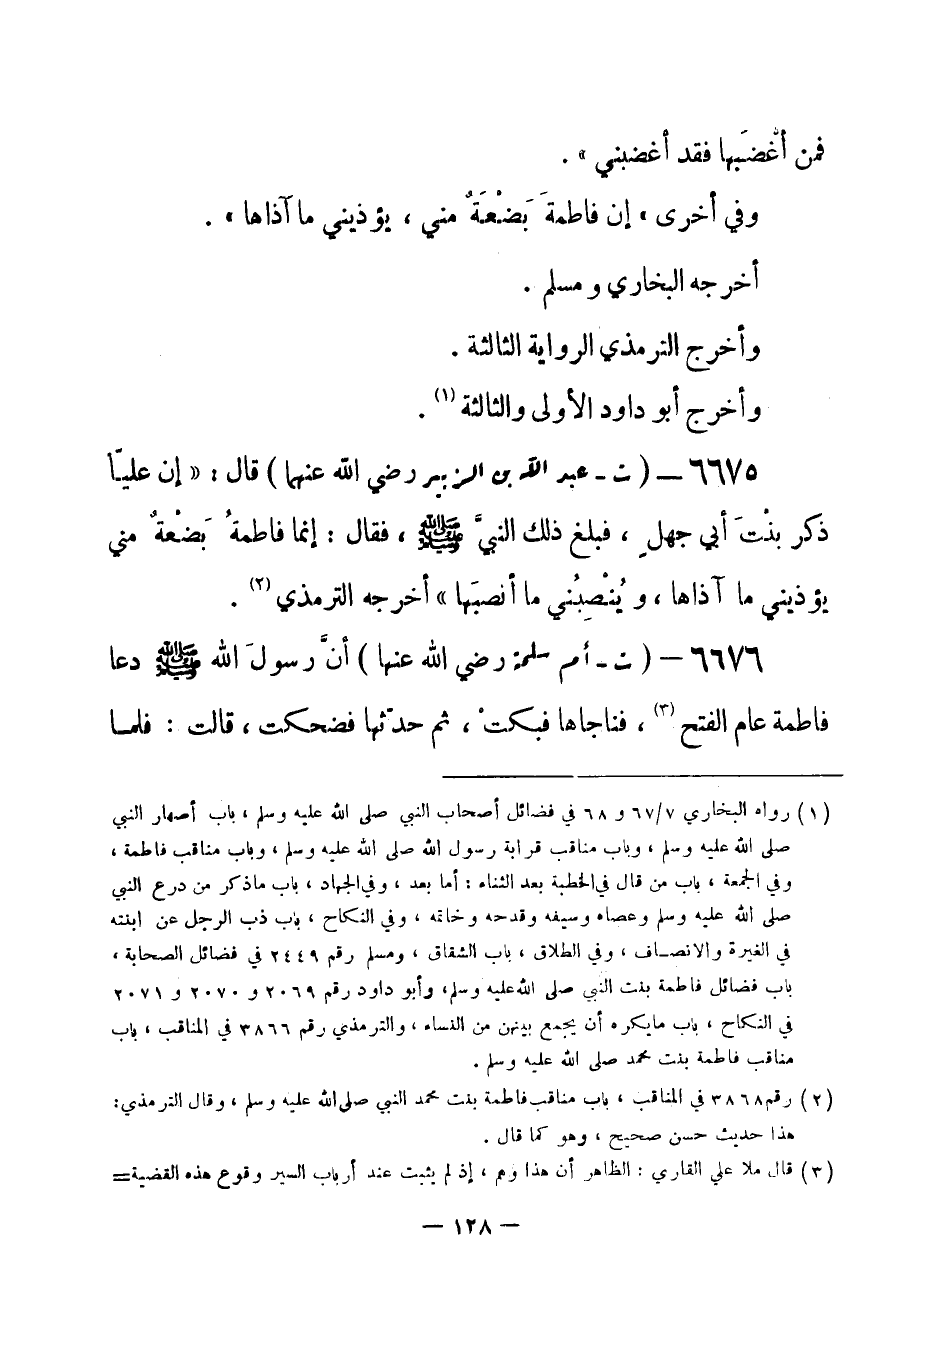 فمن أغْضَبَها فقد أغضبني » .
وفي أخرى « إن فاطمةَ بَضْعَةٌ مني ، يؤذيني ما آذاها » .
أخرجه البخاري ومسلم .
وأخرج الترمذي الرواية الثالثة .
وأخرج أبو داود الأولى والثالثة (١) .
٦٦٧٥ – ( ت - عبد الله بن الزبير رضي الله عنهما ) قال : « إن علياً
ذكر بنْتَ أبي جهلٍ ، فبلغ ذلك النبيَّ ﷺ ، فقال : إنما فاطمةُ بَضْعةٌ مني
يؤذيني ما آذاها ، ويُنْصِبُني ما أنصبَها » أخرجه الترمذي (٢) .
٦٦٧٦ – ( ت - أم سلمة رضي الله عنها ) أنَّ رسولَ الله ﷺ دعا
فاطمة عام الفتح (٣) ، فناجاها فبكتْ ، ثم حدّثها فضحكت ، قالت : فلما
(١) رواه البخاري ٦٧/٧ و ٦٨ في فضائل أصحاب النبي صلى الله عليه وسلم ، باب أصهار النبي
صلى الله عليه وسلم ، وباب مناقب قرابة رسول الله صلى الله عليه وسلم ، وباب مناقب فاطمة ،
وفي الجمعة ، باب من قال في الخطبة بعد الثناء : أما بعد ، وفي الجهاد ، باب ماذكر من درع النبي
صلى الله عليه وسلم وعصاه وسيفه وقدحه وخاتمه ، وفي النكاح ، باب ذب الرجل عن ابنته
في الغيرة والانصاف ، وفي الطلاق ، باب الشقاق ، ومسلم رقم ٢٤٤٩ في فضائل الصحابة ،
باب فضائل فاطمة بنت النبي صلى الله عليه وسلم، وأبو داود رقم ٢٠٦٩ و ٢٠٧٠ و ٢٠٧١
في النكاح ، باب مايكره أن يجمع بينهن من النساء ، والترمذي رقم ٣٨٦٦ في المناقب ، باب
مناقب فاطمة بنت محمد صلى الله عليه وسلم .
(٢) رقم ٣٨٦٨ في المناقب ، باب مناقب فاطمة بنت محمد النبي صلى الله عليه وسلم ، وقال الترمذي:
هذا حديث حسن صحيح ، وهو كما قال .
(٣) قال ملا علي القاري : الظاهر أن هذا وهم ، إذ لم يثبت عند أرباب السير وقوع هذه القضية=
– ١٢٨ –